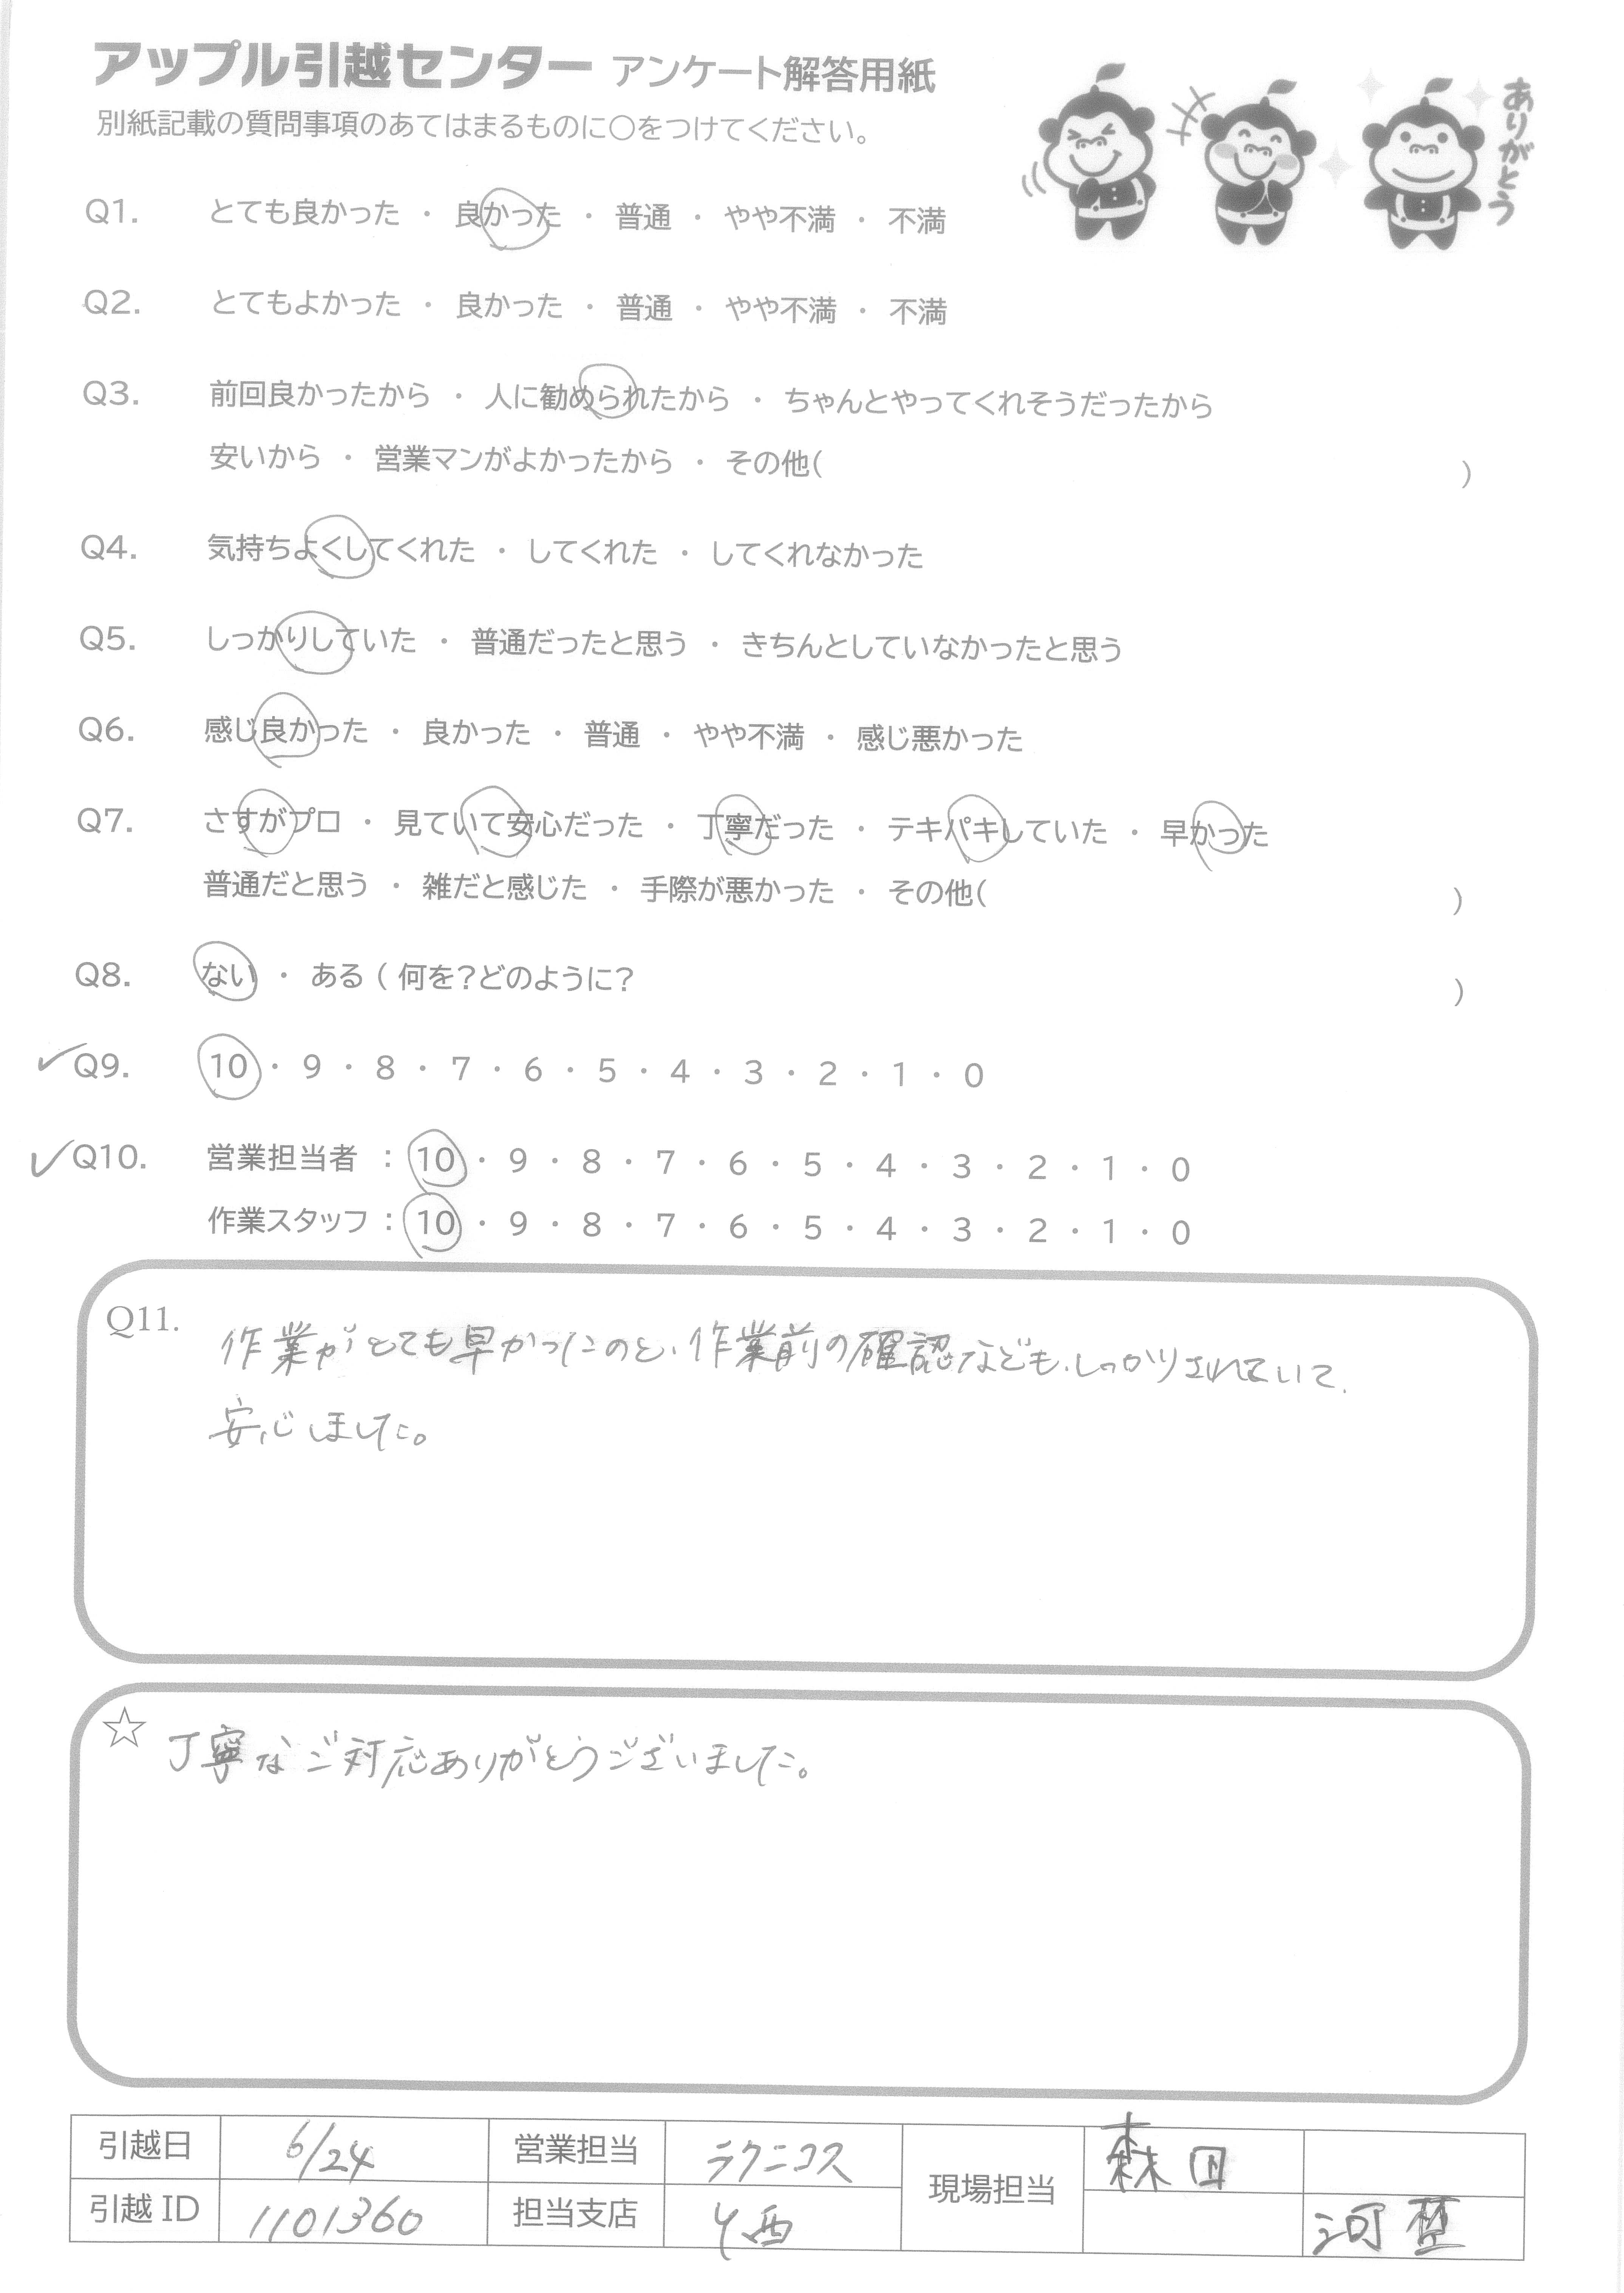 アップル引越センター アンケート解答用紙
別紙記載の質問事項のあてはまるものに○をつけてください。
ありがとう
Q1. とても良かった ・ 良かった ・ 普通 ・ やや不満 ・ 不満
Q2. とてもよかった ・ 良かった ・ 普通 ・ やや不満 ・ 不満
Q3. 前回良かったから ・ 人に勧められたから ・ ちゃんとやってくれそうだったから
安いから ・ 営業マンがよかったから ・ その他( )
Q4. 気持ちよくしてくれた ・ してくれた ・ してくれなかった
Q5. しっかりしていた ・ 普通だったと思う ・ きちんとしていなかったと思う
Q6. 感じ良かった ・ 良かった ・ 普通 ・ やや不満 ・ 感じ悪かった
Q7. さすがプロ ・ 見ていて安心だった ・ 丁寧だった ・ テキパキしていた ・ 早かった
普通だと思う ・ 雑だと感じた ・ 手際が悪かった ・ その他( )
Q8. ない ・ ある ( 何を?どのように? )
Q9. 10 ・ 9 ・ 8 ・ 7 ・ 6 ・ 5 ・ 4 ・ 3 ・ 2 ・ 1 ・ 0
Q10. 営業担当者 : 10 ・ 9 ・ 8 ・ 7 ・ 6 ・ 5 ・ 4 ・ 3 ・ 2 ・ 1 ・ 0
作業スタッフ : 10 ・ 9 ・ 8 ・ 7 ・ 6 ・ 5 ・ 4 ・ 3 ・ 2 ・ 1 ・ 0
Q11. 作業がとても早かったのと、作業前の確認なども、しっかりされていて、
安心しました。
☆ 丁寧なご対応ありがとうございました。
引越日 6/24 営業担当 テクニコス 現場担当 森田
引越 ID 1101360 担当支店 河